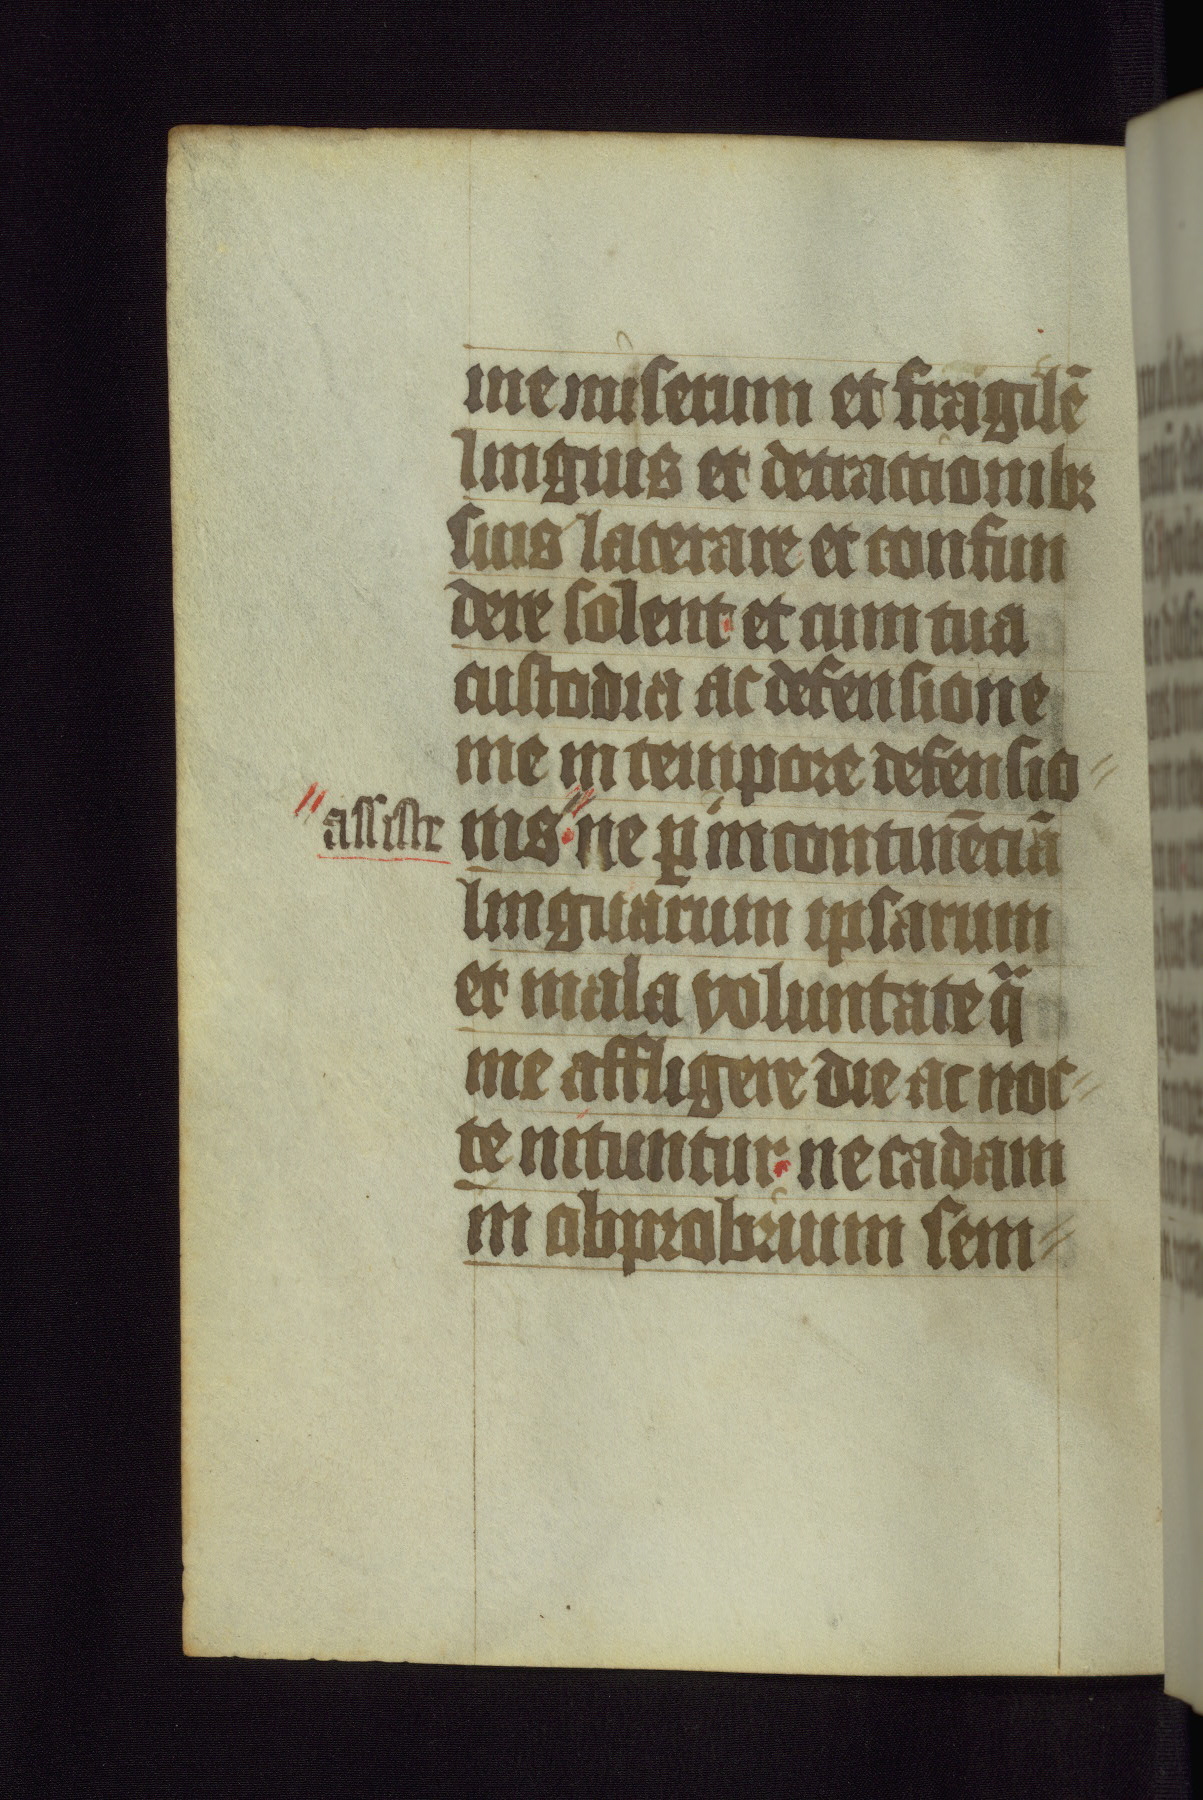 me miserum et fragilē
linguis et detractionibꝫ
suis lacerare et confun
dere solent· et cum tua
custodia ac defensione
me in tempore defensio//
//assiste
nis·// ne ꝑ incontinēciā
linguarum ipsarum
et mala voluntate q̄
me affligere die ac noc//
te nituntur· ne cadam
in obprobrium sem//